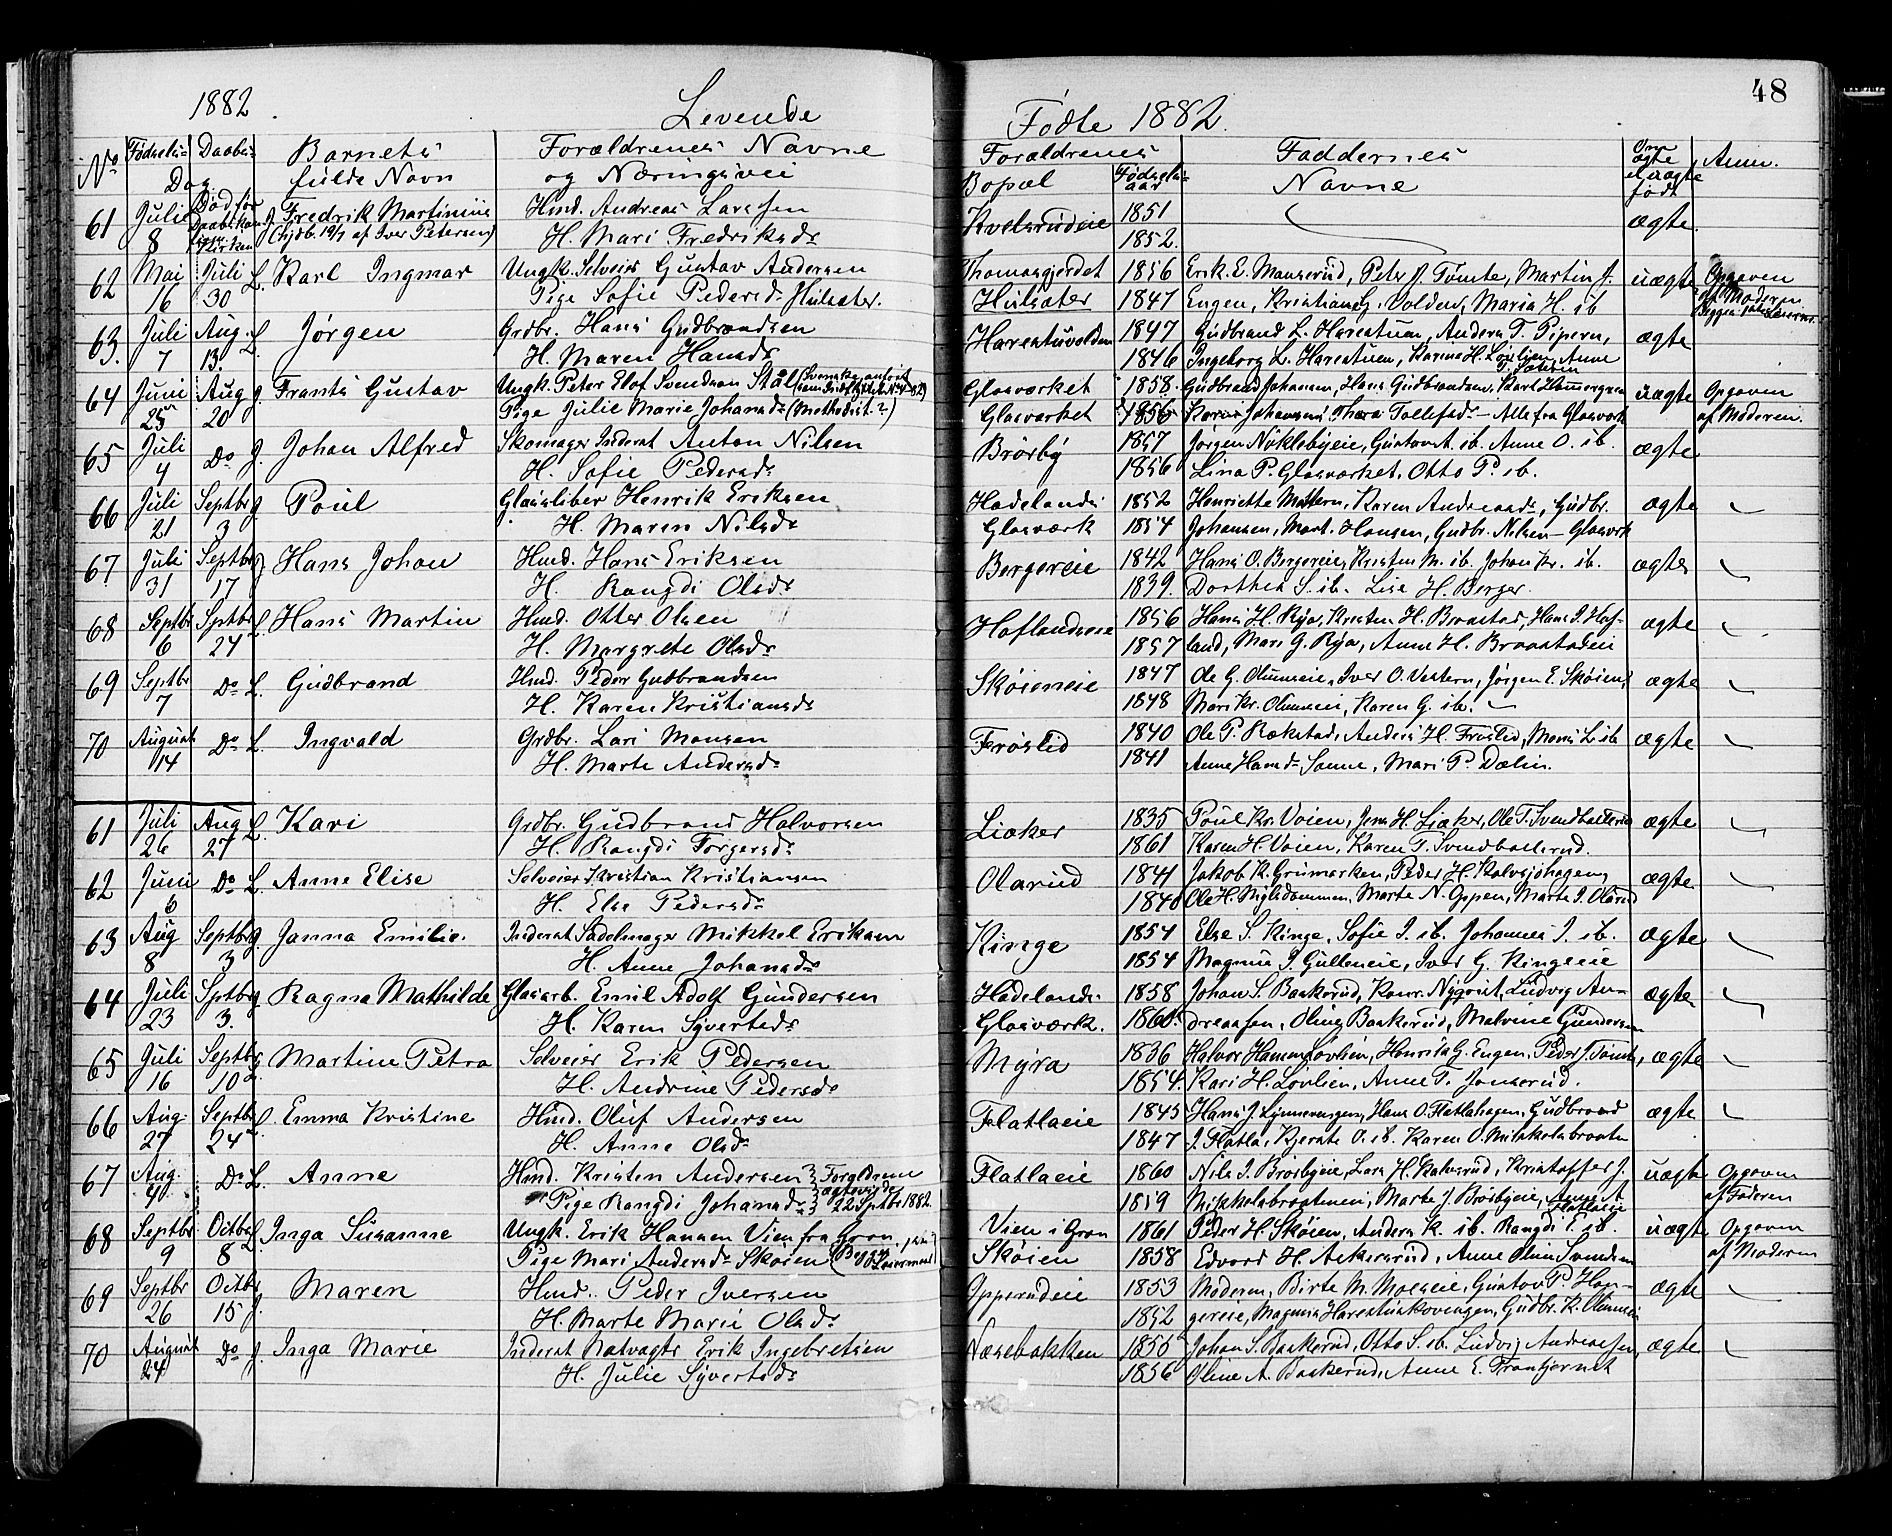 48
1882 Levende Fødte 1882.
No Fødsels- Daabs- Dag Barnets fulde Navn Forældrenes Navne og Næringsvei Forældrenes Bopæl Fødselsaar Faddernes Navne Om ægte el. uægte født Anm.
61 Julie 8 Død før J. Fredrik Martinius Hmd. Andreas Larssen Kvelsrudeie 1851 ægte.
(Hjdb. 19/7 af Iver Petersen) H. Mari Fredriksdr 1852.
62 Mai 16 Juli 30 L. Karl Ingmar Ungk. Selveier Gustav Andersen Thomasgjerdet 1856 Erik E. Monserud, Peter J. Tømte, Martin J. uægte Opgaven
Pige Sofie Pedersdr Hulsæter. Hulsæter 1847 Engen, Kristian G. Volden, Maria H. ib af Moderen
63. Juli 7 Aug. 13. L. Jørgen Grdbr. Hans Gudbrandsen Harestuvolden 1847 Gudbrand L. Harestuen, Anders T. Pipern, ægte
H. Maren Hansdr 1846 Ingeborg L. Harestuen, Karine H. Løvlien, Anne
T. Sæteren
64 Juni 25 Aug 20 J. Frants Gustav Ungk. Peter Elof Svendsen Stål Glasværket 1858. Gudbrand Johansen, Hans Gudbrandsen, Karl Hammergren uægte Opgaven
Pige Julie Marie Johansdr (Methodist?) Glasværket 1856 Karen Johansens Thora Tollefsdr - Alle fra Glasværk af Moderen.
65 Juli 4 Do J. Johan Alfred Skomager Inderst Anton Nilsen Brørby 1857 Jørgen Nøklebyeie, Gustava A. ib. Anne O. ib. ægte
H. Sofie Pedersdr 1856 Lina P. Glasværket, Otto P. ib.
66 Juli 21 Septbr 3 J. Poul Glassliber Henrik Eriksen Hadelands 1852 Henriette Mathern, Karen Andreasdr, Gudbr. ægte
H. Maren Nilsdr Glasværk 1854 Johansen, Mart. Hansen, Gudbr. Nilsen - Glasværk
67 Juli 31 Septbr 17 J Hans Johan Hmd. Hans Eriksen Bergereie 1842 Hans O. Bergereie, Kristen M. ib. Johan Kr. ib. ægte
H. Rangdi Olsdr 1839. Dorthea S. ib. Lise H. Berger.
68 Septbr 6 Septbr 24 L. Hans Martin Hmd. Otter Olsen Haflandseie 1856 Hans H. Rya, Kristen H. Braastad, Hans I. Haf- ægte
H. Margrete Olsdr 1857 land, Mari G. Rya, Anne H. Braastadeie
69 Septbr 7 Do L. Gudbrand Hmd. Peder Gudbrandsen Skøieneie 1847 Ole G. Olumseie, Iver O. Vestern, Jørgen E. Skøien, ægte
H. Karen Kristiansdr 1848 Mari Kr. Olumseie, Karen G. ib.
70 August 14 Do L. Ingvald Grdbr. Lars Monsen Frøslid 1840 Ole P. Rækstad, Anders H. Frøslid, Mons L. ib ægte
H. Marte Andersdr 1841 Anne Hansdr Sonne, Mari P. Dælin.
61 Juli 26 Aug 27 L. Kari Grdbr. Gudbrand Halvorsen Liaker 1835 Poul Kr. Voien, Jens H. Liaker, Ole T. Svendballerud ægte
H. Rangdi Torgersdr 1861 Karen H. Voien, Karen T. Svendballerud.
62 Juni 6 Do L. Anne Elise Selveier Kristian Kristiansen Olarud 1841 Jakob K. Grumarken, Peder H. Kalvsjøhagen, ægte
H. Else Pedersdr 1840 Ole H. Myladommen, Marte N. Oppen, Marte I. Olarud
63 Aug 8 Septbr 3 J. Janna Emilie. Inderst Sadelmager Mikkel Eriksen Kinge 1854 Else S. Kinge, Sofie I. ib. Johannes I. ib. ægte
H. Anne Johansdr 1854 Magnus I. Gulleneie, Iver G. Kingeeie
64 Juli 23 Sptbr 3. J. Ragna Mathilde Glasarb. Emil Adolf Gundersen Hadelands 1858 Johan S. Baakerud, Konr. Nygvist, Ludvig An- ægte
H. Karen Syvertsdr Glasværk. 1860. dreassen, Oline Baakerud, Malvine Gundersen
65 Juli 16 Septbr 10 J Martine Petra Selveier Erik Pedersen Myra 1836 Halvor Hansen Løvlien, Henrik G. Engen, Peder J. Tømte, ægte
H. Andrine Pedersdr 1854. Kari H. Løvlien, Anne T. Jonserud.
66 Aug 27 Septbr 24 L. Emma Kristine Hmd. Oluf Andersen Flatlaeie 1845 Hans J. Lynnevangen, Hans O. Flatlahagen, Gudbrand ægte
H. Anne Olsdr 1847 I. Flatla, Kjerste O. ib. Karen O. Mikkelsbraaten
67 Aug. 4 Do L. Anne Hmd. Kristen Andersen } Forældrene Flatlaeie 1860 Nils I. Brørbyeie, Lars H. Kalvsrud, Kristoffer J. uægte Opgaven
Pige Rangdi Johansdr } 22 Septbr 1882. 1859 Mikkelsbraatenen, Marte J. Brørbyeie, Anne A. Flatlaeie af Faderen
68 Septbr 9 Octbr 8 L. Inga Susanne Ungk. Erik Hansen Vien fra Gran, Vien i Gran 1861 Peder H. Skøien, Anders K. ib. Rangdi E. ib. uægte Opgaven
Pige Mari Andersdr Skøien Skøien 1858 Edvard H. Aekersrud, Anne Oline Svendsen af Moderen
69 Septbr 26 Octbr 15 J. Maren Hmd. Peder Iversen Opperudeie 1853 Moderen, Birte M. Moeseie, Gustav P. Han- ægte
H. Marte Marie Olsdr 1852 gereie, Magnus Harestuskovengen, Gudbr. K. Olumseie
70 August 24 Do J. Inga Marie Inderst Natvægter Erik Ingebretsen Næsebakken 1855 Johan S. Baakerud, Otto S. ib. Ludvig Andreassen, ægte
H. Julie Syvertsdr 1856 Oline A. Baakerud, Anne E. Trantjernet